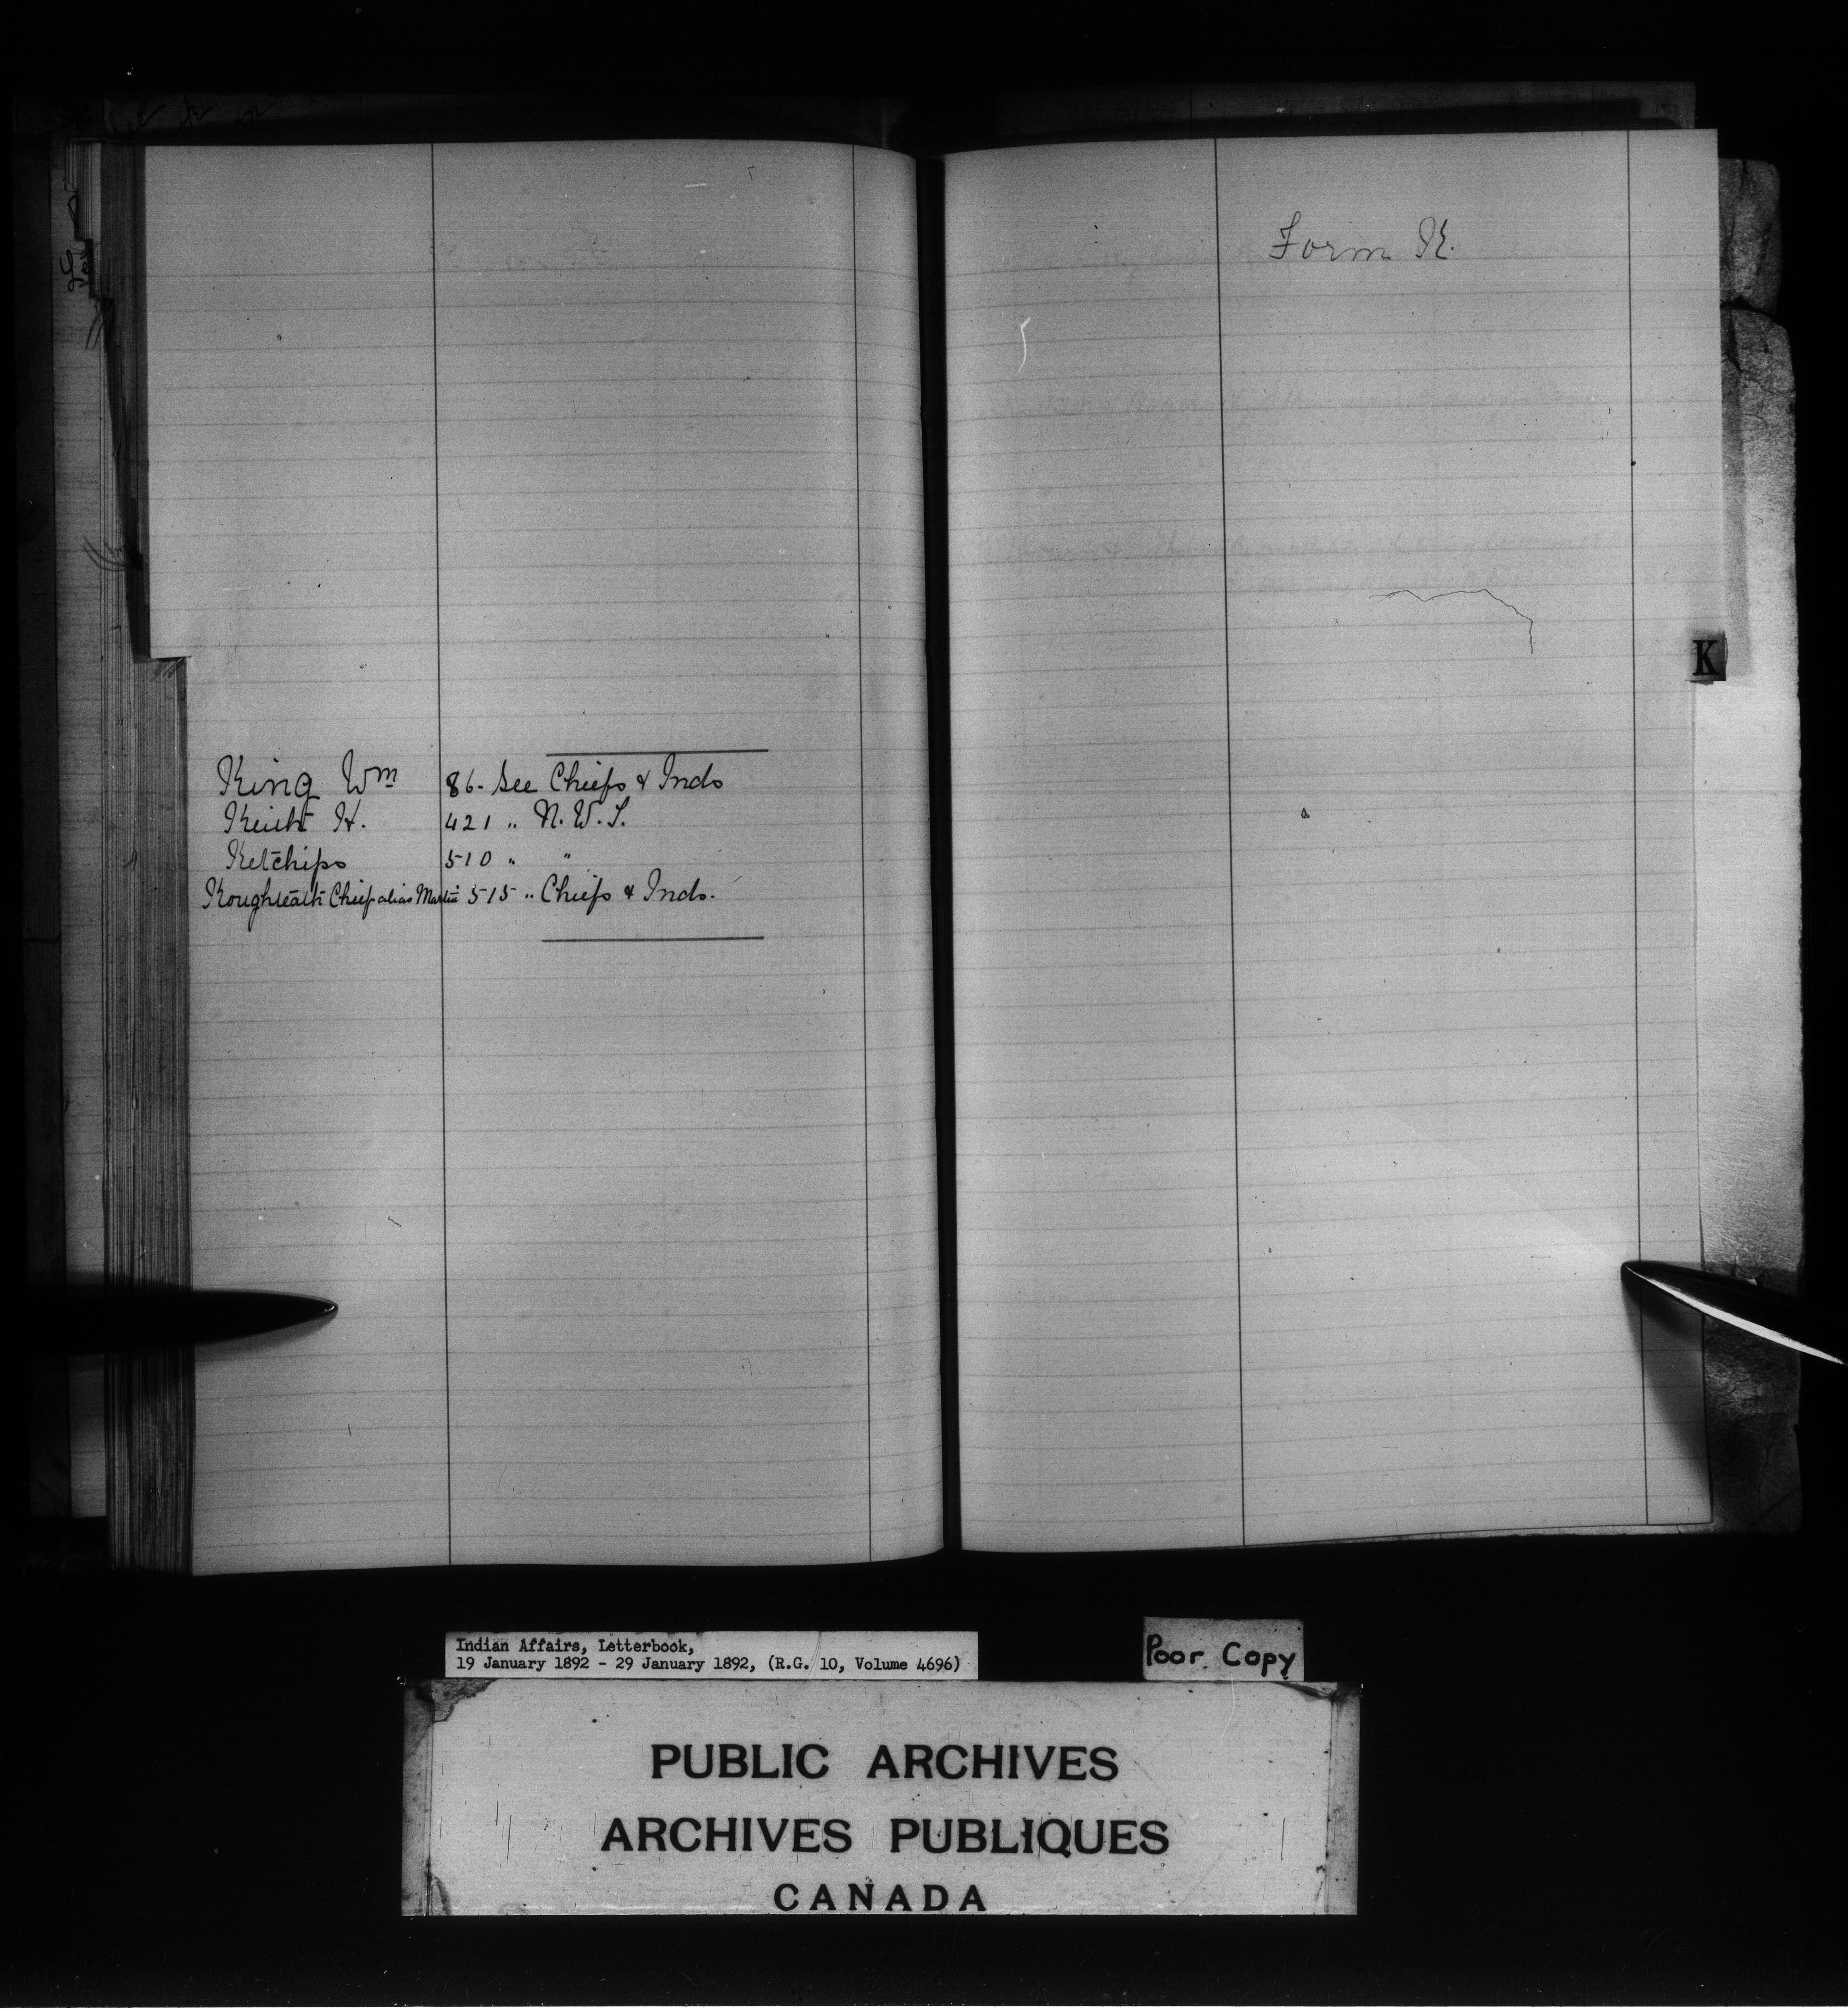 King Wm 86 - See Chiefs & Inds
Keith H. 421 " N. W. T.
Ketchips 510 " "
Chief alias Martin 515 " Chiefs & Inds.
Form K.
K
Indian Affairs, Letterbook,
19 January 1892 - 29 January 1892, (R.G. 10, Volume 4696)
Poor Copy
PUBLIC ARCHIVES
ARCHIVES PUBLIQUES
CANADA